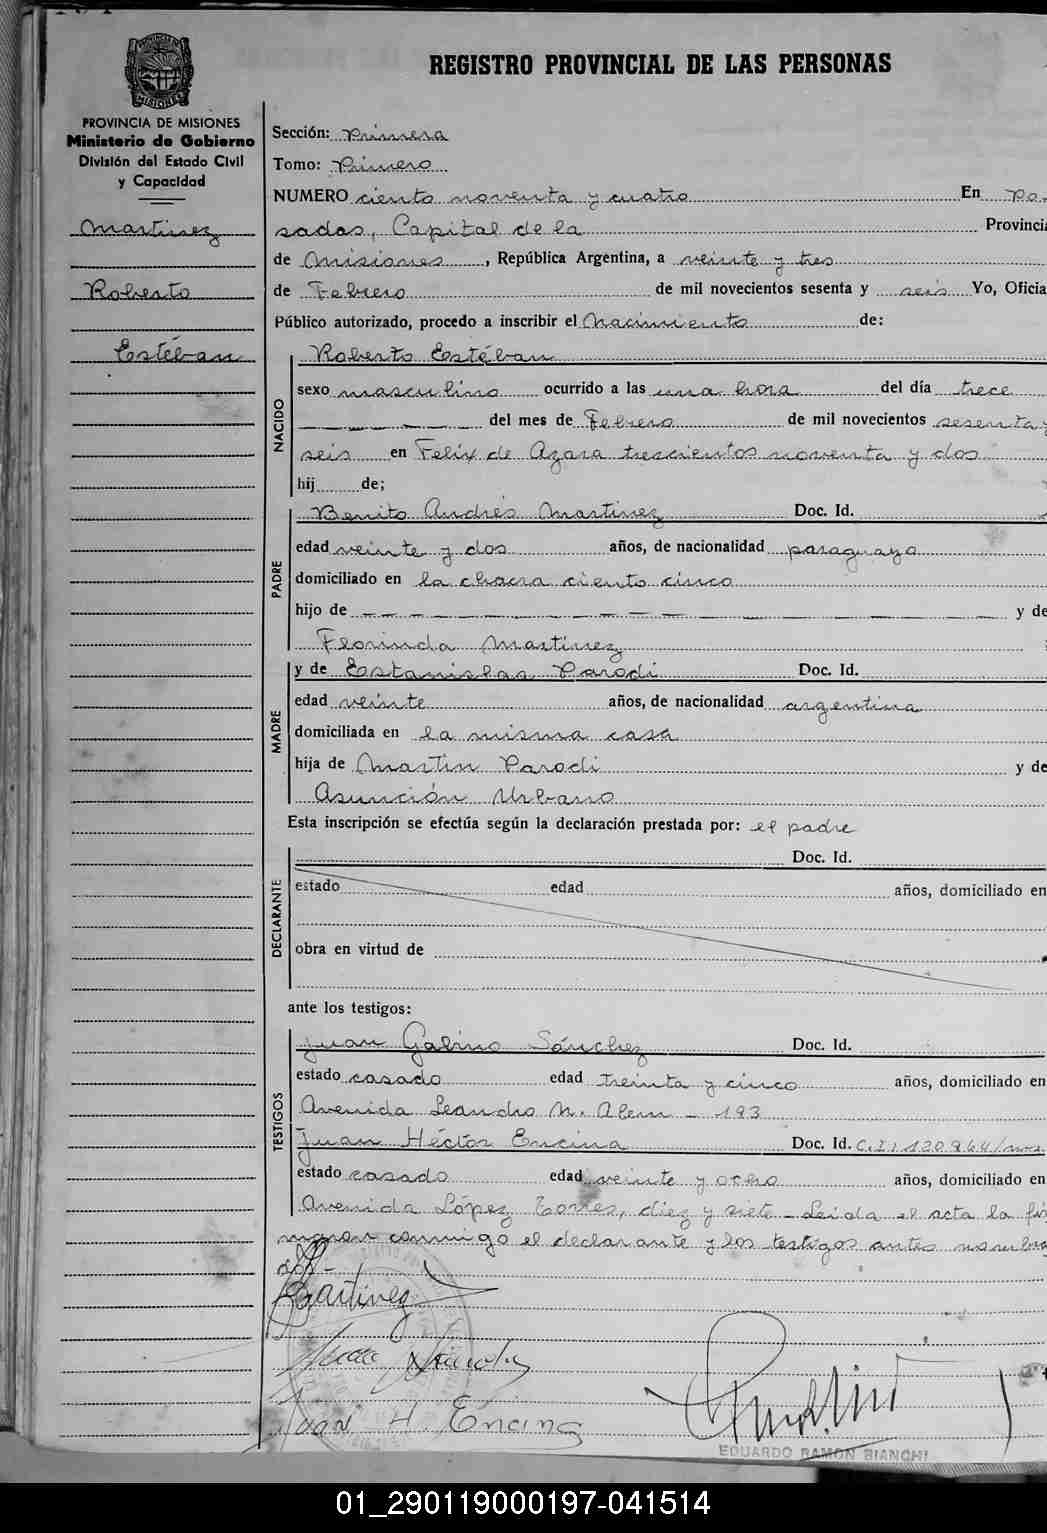 REGISTRO PROVINCIAL DE LAS PERSONAS
PROVINCIA DE MISIONES
PROVINCIA DE MISIONES
Ministerio de Gobierno
División del Estado Civil
y Capacidad
Martinez
Roberto
Estéban
Sección: Primera
Tomo: Primero
NUMERO ciento noventa y cuatro En Po-
sadas, Capital de la Provincia
de Misiones, República Argentina, a veinte y tres
de Febrero de mil novecientos sesenta y seis Yo, Oficia
Público autorizado, procedo a inscribir el Nacimiento de:
NACIDO
Roberto Estéban
sexo masculino ocurrido a las una hora del día trece
del mes de Febrero de mil novecientos sesenta y
seis en Felix de Azara trescientos noventa y dos
hij de;
PADRE
Benito Andrés Martinez Doc. Id.
edad veinte y dos años, de nacionalidad paraguayo
domiciliado en la chacra ciento cinco
hijo de y de
Florinda Martinez
MADRE
y de Estanislaa Parodi Doc. Id.
edad veinte años, de nacionalidad argentina
domiciliada en la misma casa
hija de Martin Parodi y de
Asunción Urbano
Esta inscripción se efectúa según la declaración prestada por: el padre
DECLARANTE
Doc. Id.
estado edad años, domiciliado en
obra en virtud de
ante los testigos:
TESTIGOS
Juan Galino Sánchez Doc. Id.
estado casado edad treinta y cinco años, domiciliado en
Avenida Leandro N. Alem - 193
Juan Héctor Encina Doc. Id. C.I. 120964
estado casado edad veinte y ocho años, domiciliado en
Avenida López Torres, diez y siete - Leida el acta la fir
maron conmigo el declarante y los testigos antes nombra
dos -
Martinez
Juan H. Encina
EDUARDO RAMON BIANCHI
01_290119000197-041514